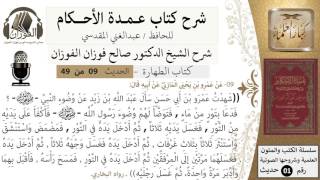 شرح كتاب عمدة الأحكام
للحافظ / عبدالغني المقدسي
شرح الشيخ الدكتور صالح فوزان الفوزان
كتاب الطهارة - الحديث 09 من 49
09- عَنْ عَمْرِو بْنِ يَحْيَى المَازِنِيِّ عَنْ أَبِيهِ قَالَ:
((شَهِدْتُ عَمْرَو بْنَ أَبِي حَسَنٍ سَأَلَ عَبْدَ اللَّهِ بْنَ زَيْدٍ عَنْ وُضُوءِ النَّبِيِّ ؟
فَدَعَا بِتَوْرٍ مِنْ مَاءٍ , فَتَوَضَّأَ لَهُمْ وُضُوءَ النَّبِيِّ فَأَكْفَأَ عَلَى يَدَيْهِ
مِنَ التَّوْرِ , فَغَسَلَ يَدَيْهِ ثَلَاثًا , ثُمَّ أَدْخَلَ يَدَهُ فِي التَّوْرِ , فَمَضْمَضَ وَاسْتَنْشَقَ
وَاسْتَنْثَرَ ثَلَاثًا بِثَلَاثِ غَرَفَاتٍ , ثُمَّ أَدْخَلَ يَدَهُ فَغَسَلَ وَجْهَهُ ثَلَاثًا , ثُمَّ أَدْخَلَ يَدَهُ
فَغَسَلَهُمَا مَرَّتَيْنِ إِلَى الْمِرْفَقَيْنِ ثُمَّ أَدْخَلَ يَدَهُ فِي التَّوْرِ , فَمَسَحَ رَأْسَهُ , فَأَقْبَلَ بِهِمَا
وَأَدْبَرَ مَرَّةً وَاحِدَةً , ثُمَّ غَسَلَ رِجْلَيْهِ)) . رواه البخاري.
الفوزان
سلسلة الكتب والمتون
العلمية وشروحها الصوتية
رقم 01 حديث